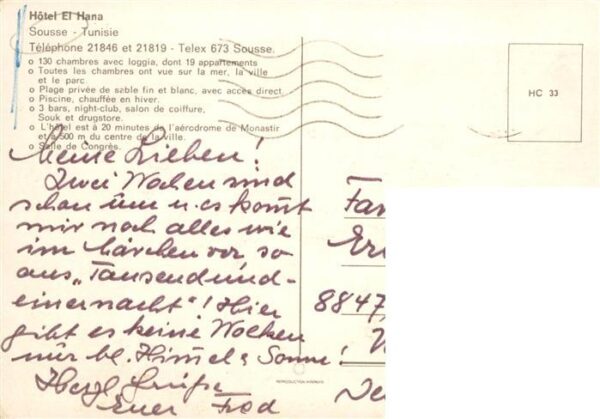 Hôtel El Hana
Sousse - Tunisie
Téléphone 21846 et 21819 - Telex 673 Sousse.
o 130 chambres avec loggia, dont 19 appartements
o Toutes les chambres ont vue sur la mer, la ville
et le parc.
o Plage privée de sable fin et blanc, avec accès direct.
o Piscine, chauffée en hiver.
o 3 bars, night-club, salon de coiffure,
Souk et drugstore.
o L'hôtel est à 20 minutes de l'aérodrome de Monastir
et à 500 m du centre de la ville.
o Salle de Congrès.
HC 33
Meine Lieben!
Zwei Wochen sind
schon um u. es kommt
mir noch alles wie
im Märchen vor, so
aus „Tausendund-
einernacht"! Hier
gibt es keine Wolken
nur bl. Himmel & Sonne!
Herzl. Grüße
Euer
Fam
8847